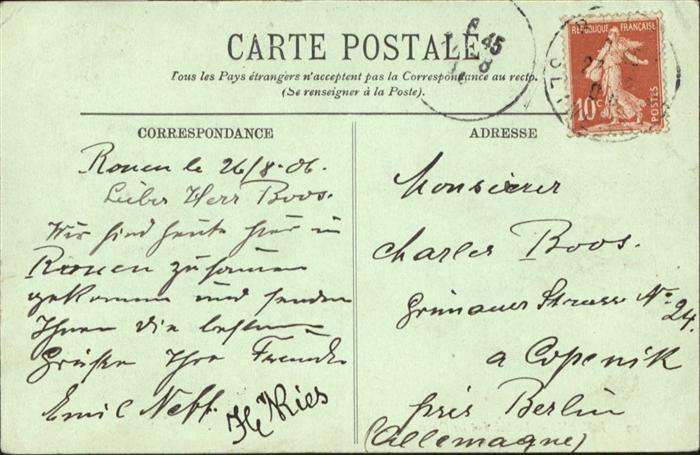 CARTE POSTALE
Tous les Pays étrangers n'acceptent pas la Correspondance au recto.
(Se renseigner à la Poste).
CORRESPONDANCE
Rouen le 26/8-06.
Lieber Herr Boos.
Wir sind heute hier in
Rouen zusamen
gekommen und senden
Ihnen die besten
Grüße Ihre Freunde
Emil Neff.
Hc Kies
ADRESSE
Monsieur
Charles Boos.
Grünauer Strasse No 24.
a Copenik
près Berlin
(Allemagne)
6 45
8
REPUBLIQUE FRANÇAISE
10c
POSTES